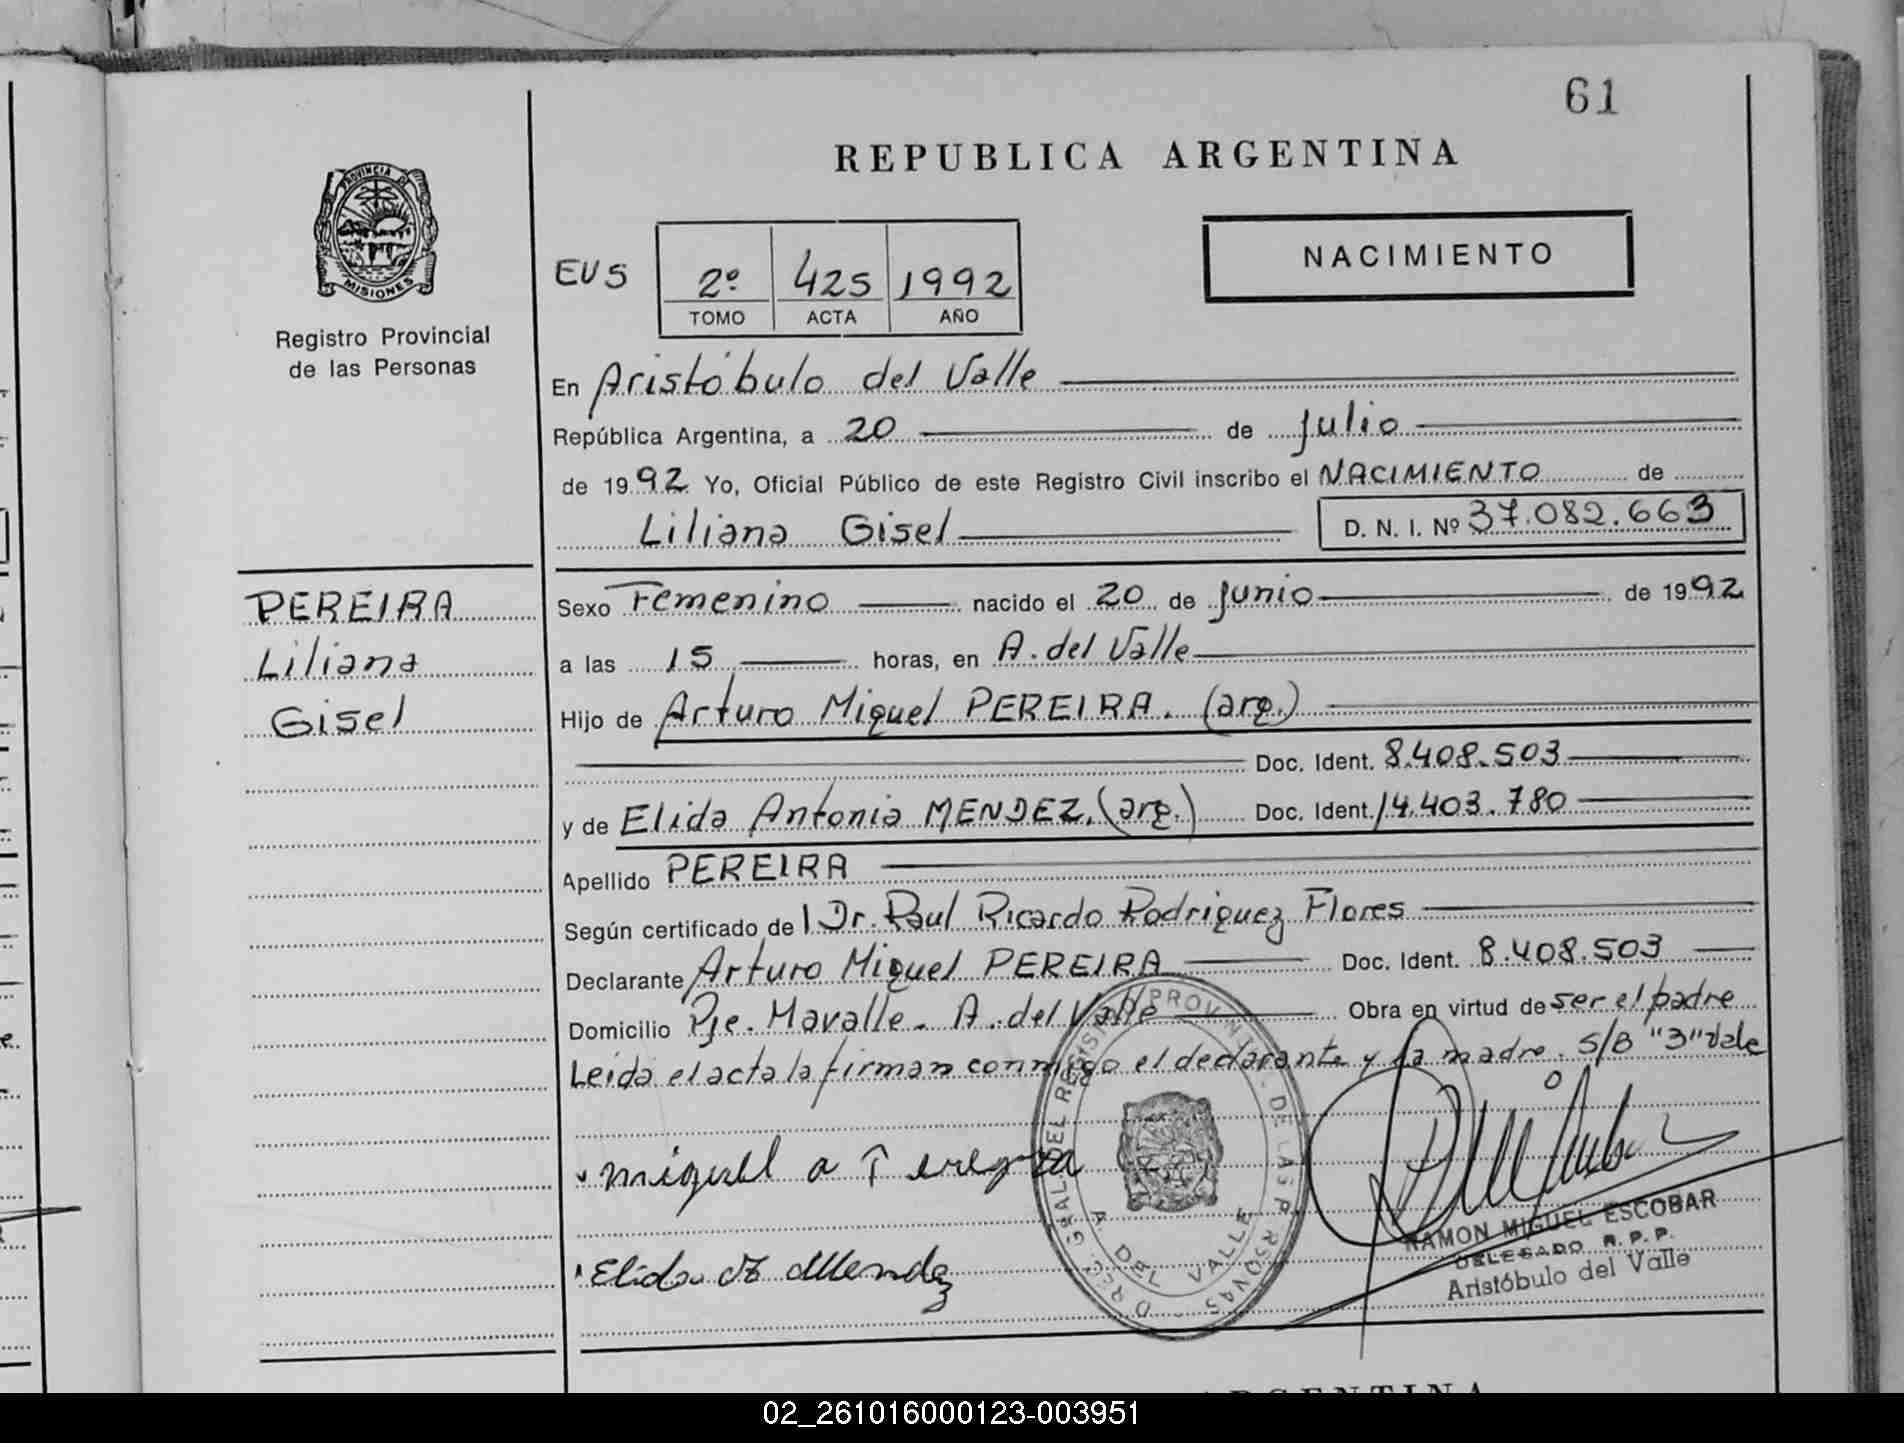 61
REPUBLICA ARGENTINA
PROVINCIA DE
MISIONES
Registro Provincial
de las Personas
EUS
2º 425 1992
TOMO ACTA AÑO
NACIMIENTO
En Aristóbulo del Valle
República Argentina, a 20 de julio
de 1992 Yo, Oficial Público de este Registro Civil inscribo el NACIMIENTO de
Liliana Gisel D. N. I. Nº 37.082.663
PEREIRA
Liliana
Gisel
Sexo Femenino nacido el 20 de junio de 1992
a las 15 horas, en A. del Valle
Hijo de Arturo Miguel PEREIRA. (arg.)
Doc. Ident. 8.408.503
y de Elida Antonia MENDEZ. (arg.) Doc. Ident. 14.403.780
Apellido PEREIRA
Según certificado de l Dr. Raul Ricardo Rodriguez Flores
Declarante Arturo Miguel PEREIRA Doc. Ident. 8.408.503
Domicilio Pje. Mavalle. A. del Valle Obra en virtud de ser el padre
Leída el acta la firman conmigo el declarante y la madre. S/B "3" vale
miguel a Pereyra
Elida A Mendez
A. DEL VALLE
RAMON MIGUEL ESCOBAR
DELEGADO R. P. P.
Aristóbulo del Valle
02_261016000123-003951